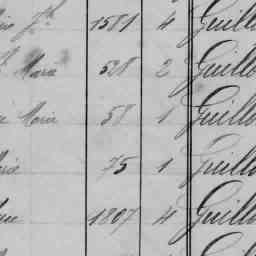 1581 4 Guillo
Marie 528 2 Guillo
Marie 58 1 Guillo
75 1 Guillo
1807 4 Guillo